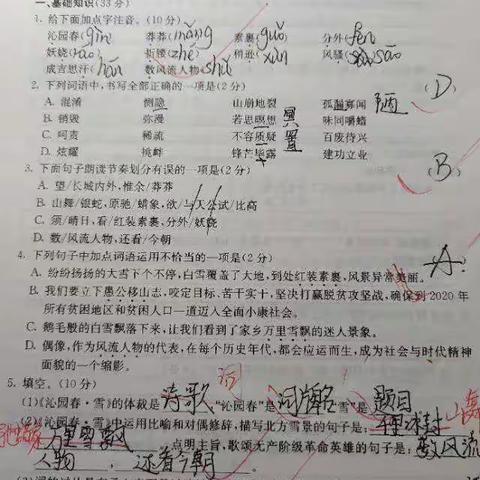 一、基础知识(33分)
1. 给下面加点字注音。(10分)
沁园春(qìn) 莽莽(mǎng) 素裹(guǒ) 分外(fèn)
妖娆(ráo) 折腰(zhé) 稍逊(xùn) 风骚(sāo)
成吉思汗(hán) 数风流人物(shǔ)
2. 下列词语中,书写全部正确的一项是(2分) (D)
A. 混淆 恻隐 山崩地裂 孤漏寡闻 陋
B. 销毁 弥漫 若思暝想 味同嚼蜡
C. 呵责 稀流 不容质疑 百废待兴 置
D. 炫耀 挑衅 锋芒毕露 建功立业
3. 下面句子朗读节奏划分有误的一项是(2分) (B)
A. 望/长城内外,惟余/莽莽
B. 山舞/银蛇,原驰/蜡象,欲/与天公试/比高
C. 须/晴日,看/红装素裹,分外/妖娆
D. 数/风流人物,还看/今朝
4. 下列句子中加点词语运用不恰当的一项是(2分) A
A. 纷纷扬扬的大雪下个不停,白雪覆盖了大地,到处红装素裹,风景异常美丽。
B. 我们要立下愚公移山志,咬定目标、苦干实十,坚决打赢脱贫攻坚战,确保到2020年
所有贫困地区和贫困人口一道迈入全面小康社会。
C. 鹅毛般的白雪飘落下来,让我们看到了家乡万里雪飘的迷人景象。
D. 偶像,作为风流人物的代表,在每个历史年代,都会应运而生,成为社会与时代精神
面貌的一个缩影。
5. 填空。(10分)
(1)《沁园春·雪》的体裁是 诗歌 ,“沁园春”是 词牌名 ,“雪”是 题目
(2)《沁园春·雪》中运用比喻和对偶修辞,描写北方雪景的句子是: 千里冰封
万里雪飘 点明主旨,歌颂无产阶级革命英雄的句子是: 数风流
人物 , 还看今朝